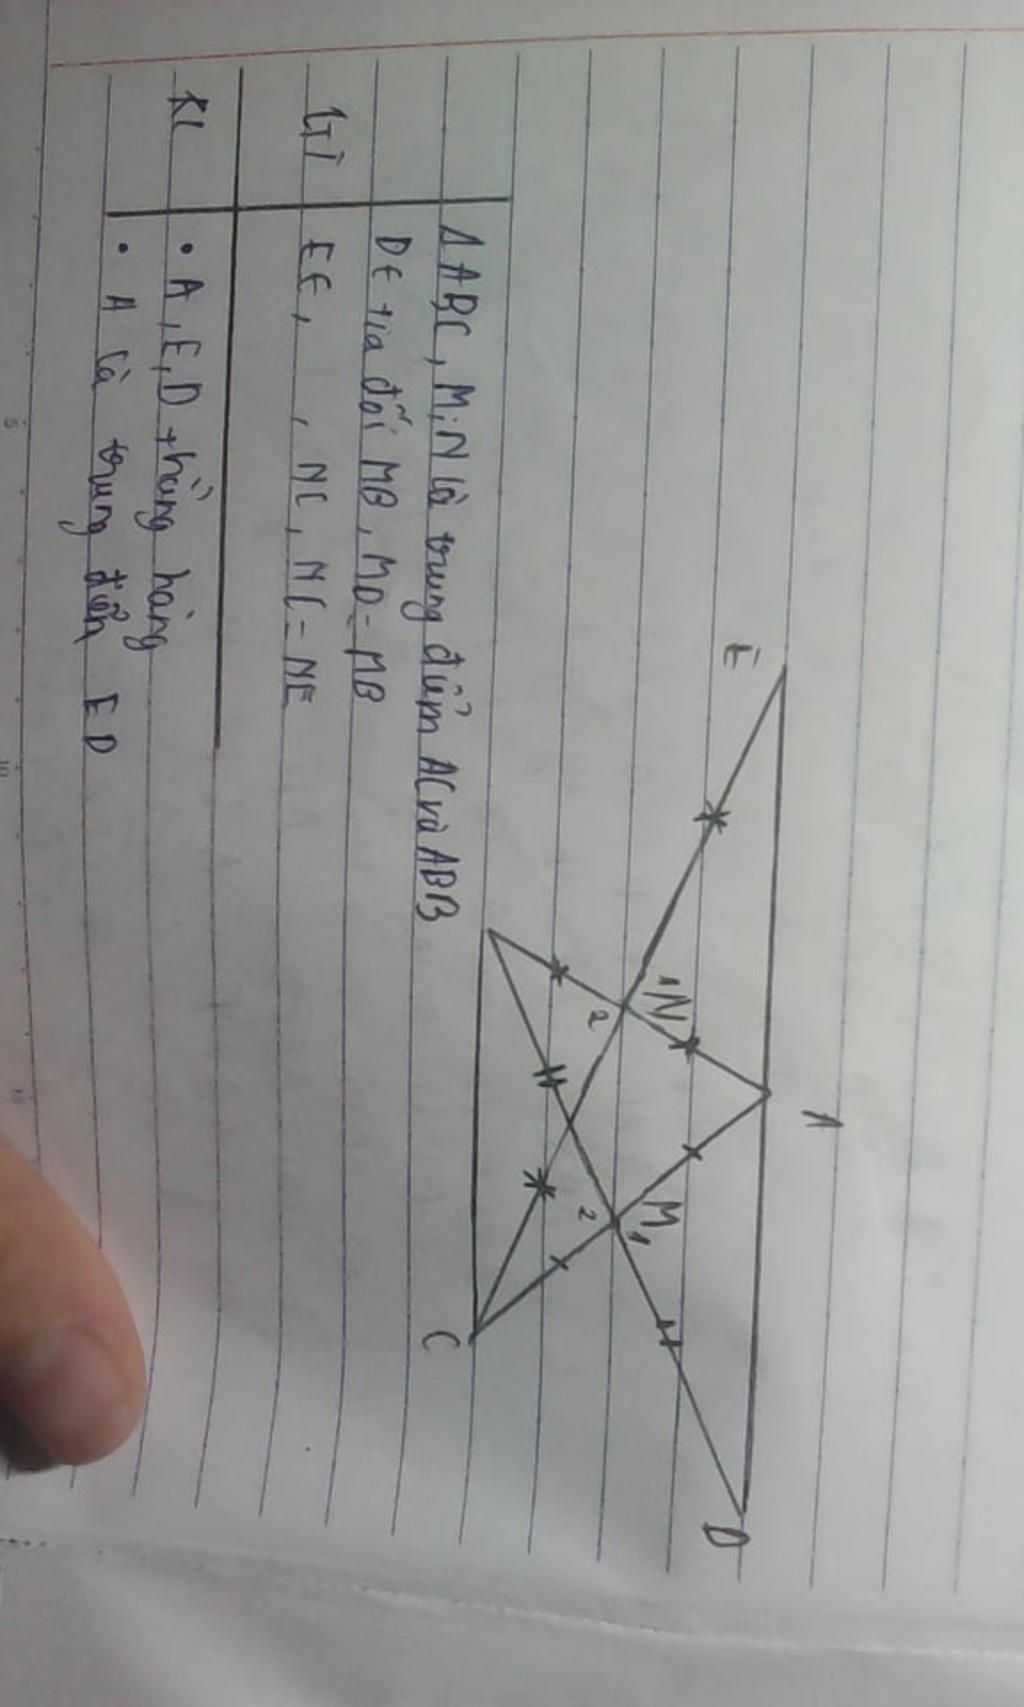 E
A
N
1
2
M
1
2
D
B
C
Δ ABC, M; N là trung điểm AC và AB
D ∈ tia đối MB, MD = MB
GT
E ∈ , , NC, NC = NE
KL
• A, E, D thẳng hàng
• A là trung điểm ED